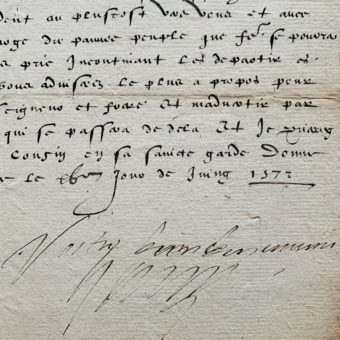 dent au plustost vous venus et avec
oge du pauvre peuple que fre se pourra
s prie Incontinant les departir es
vous adviserez le plus a propos pour
seigneur et foire Et madvertir par
qui se passera de dela Et Je prieray
Cousin en sa saincte garde Donne
e le jour de Juing 1577